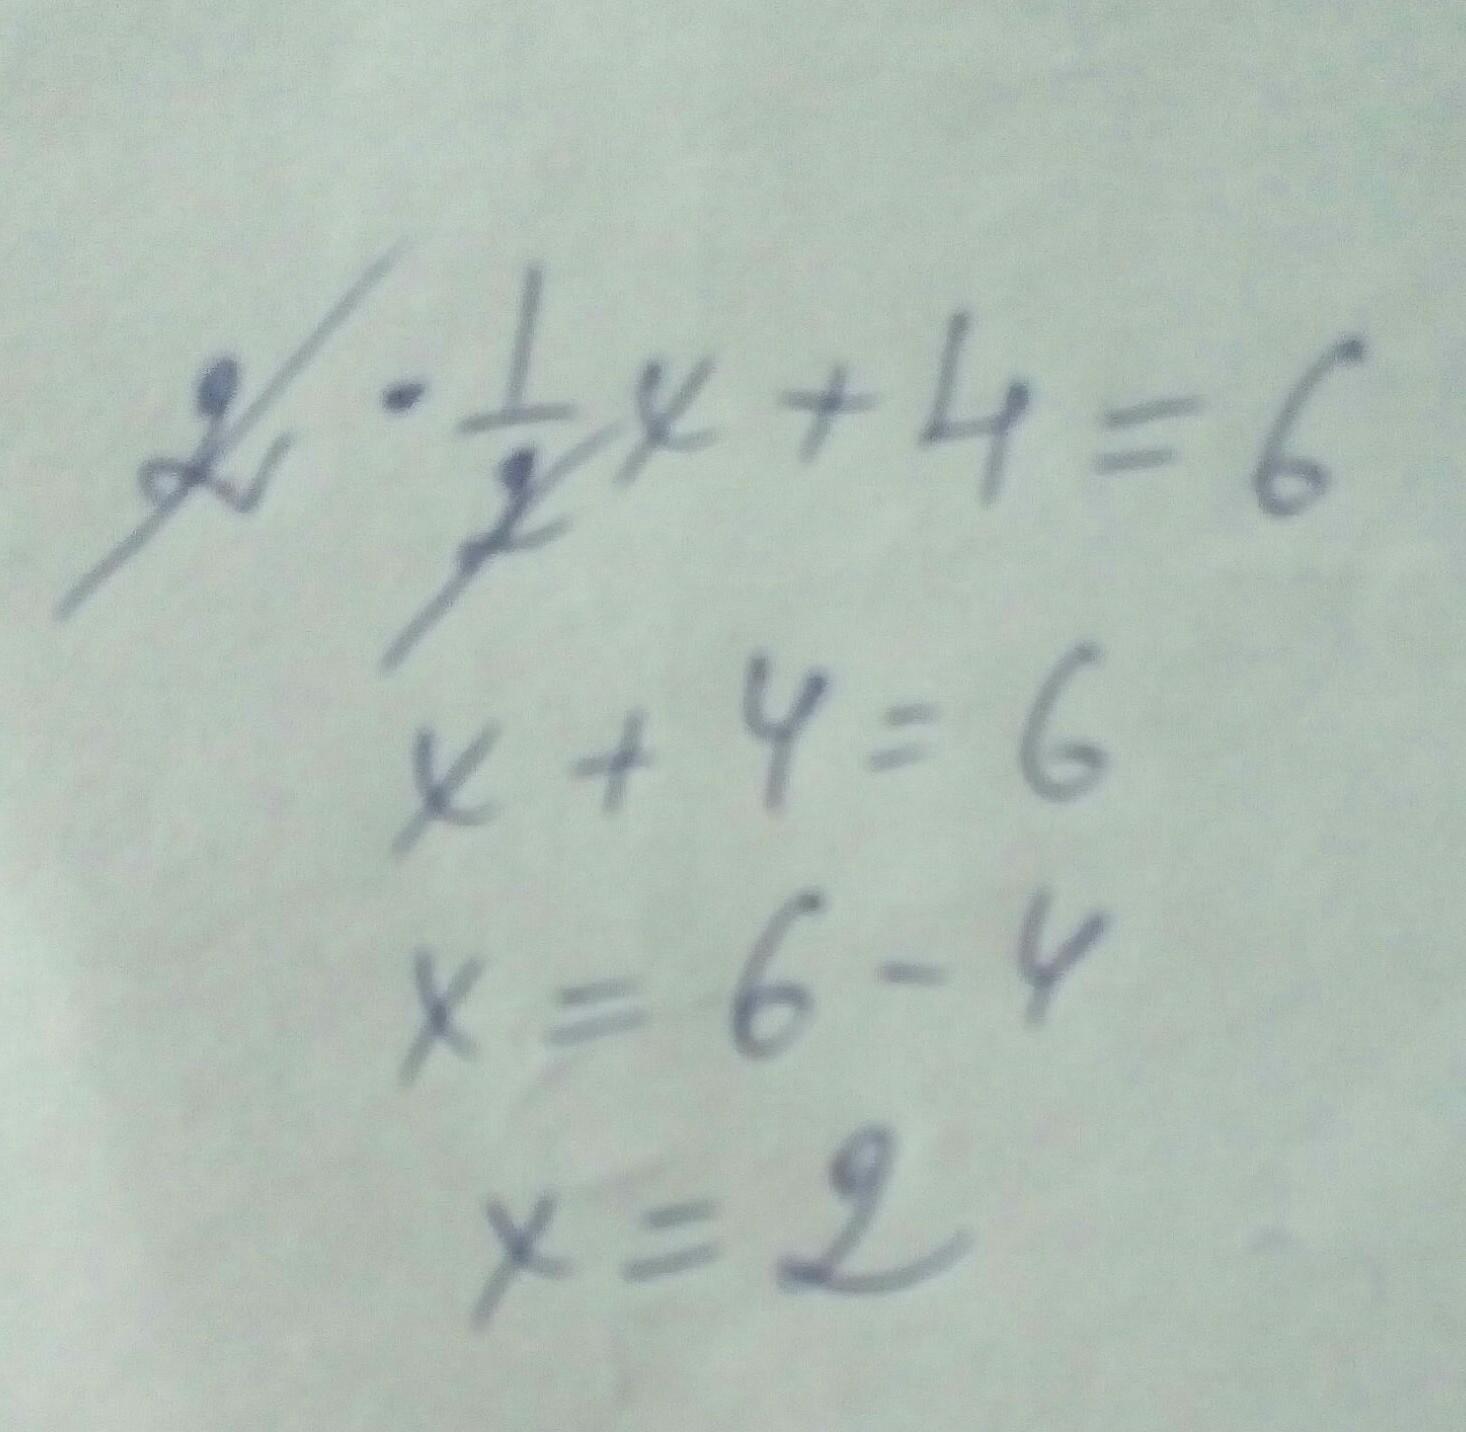 2 · 1/2 x + 4 = 6
x + 4 = 6
x = 6 - 4
x = 2